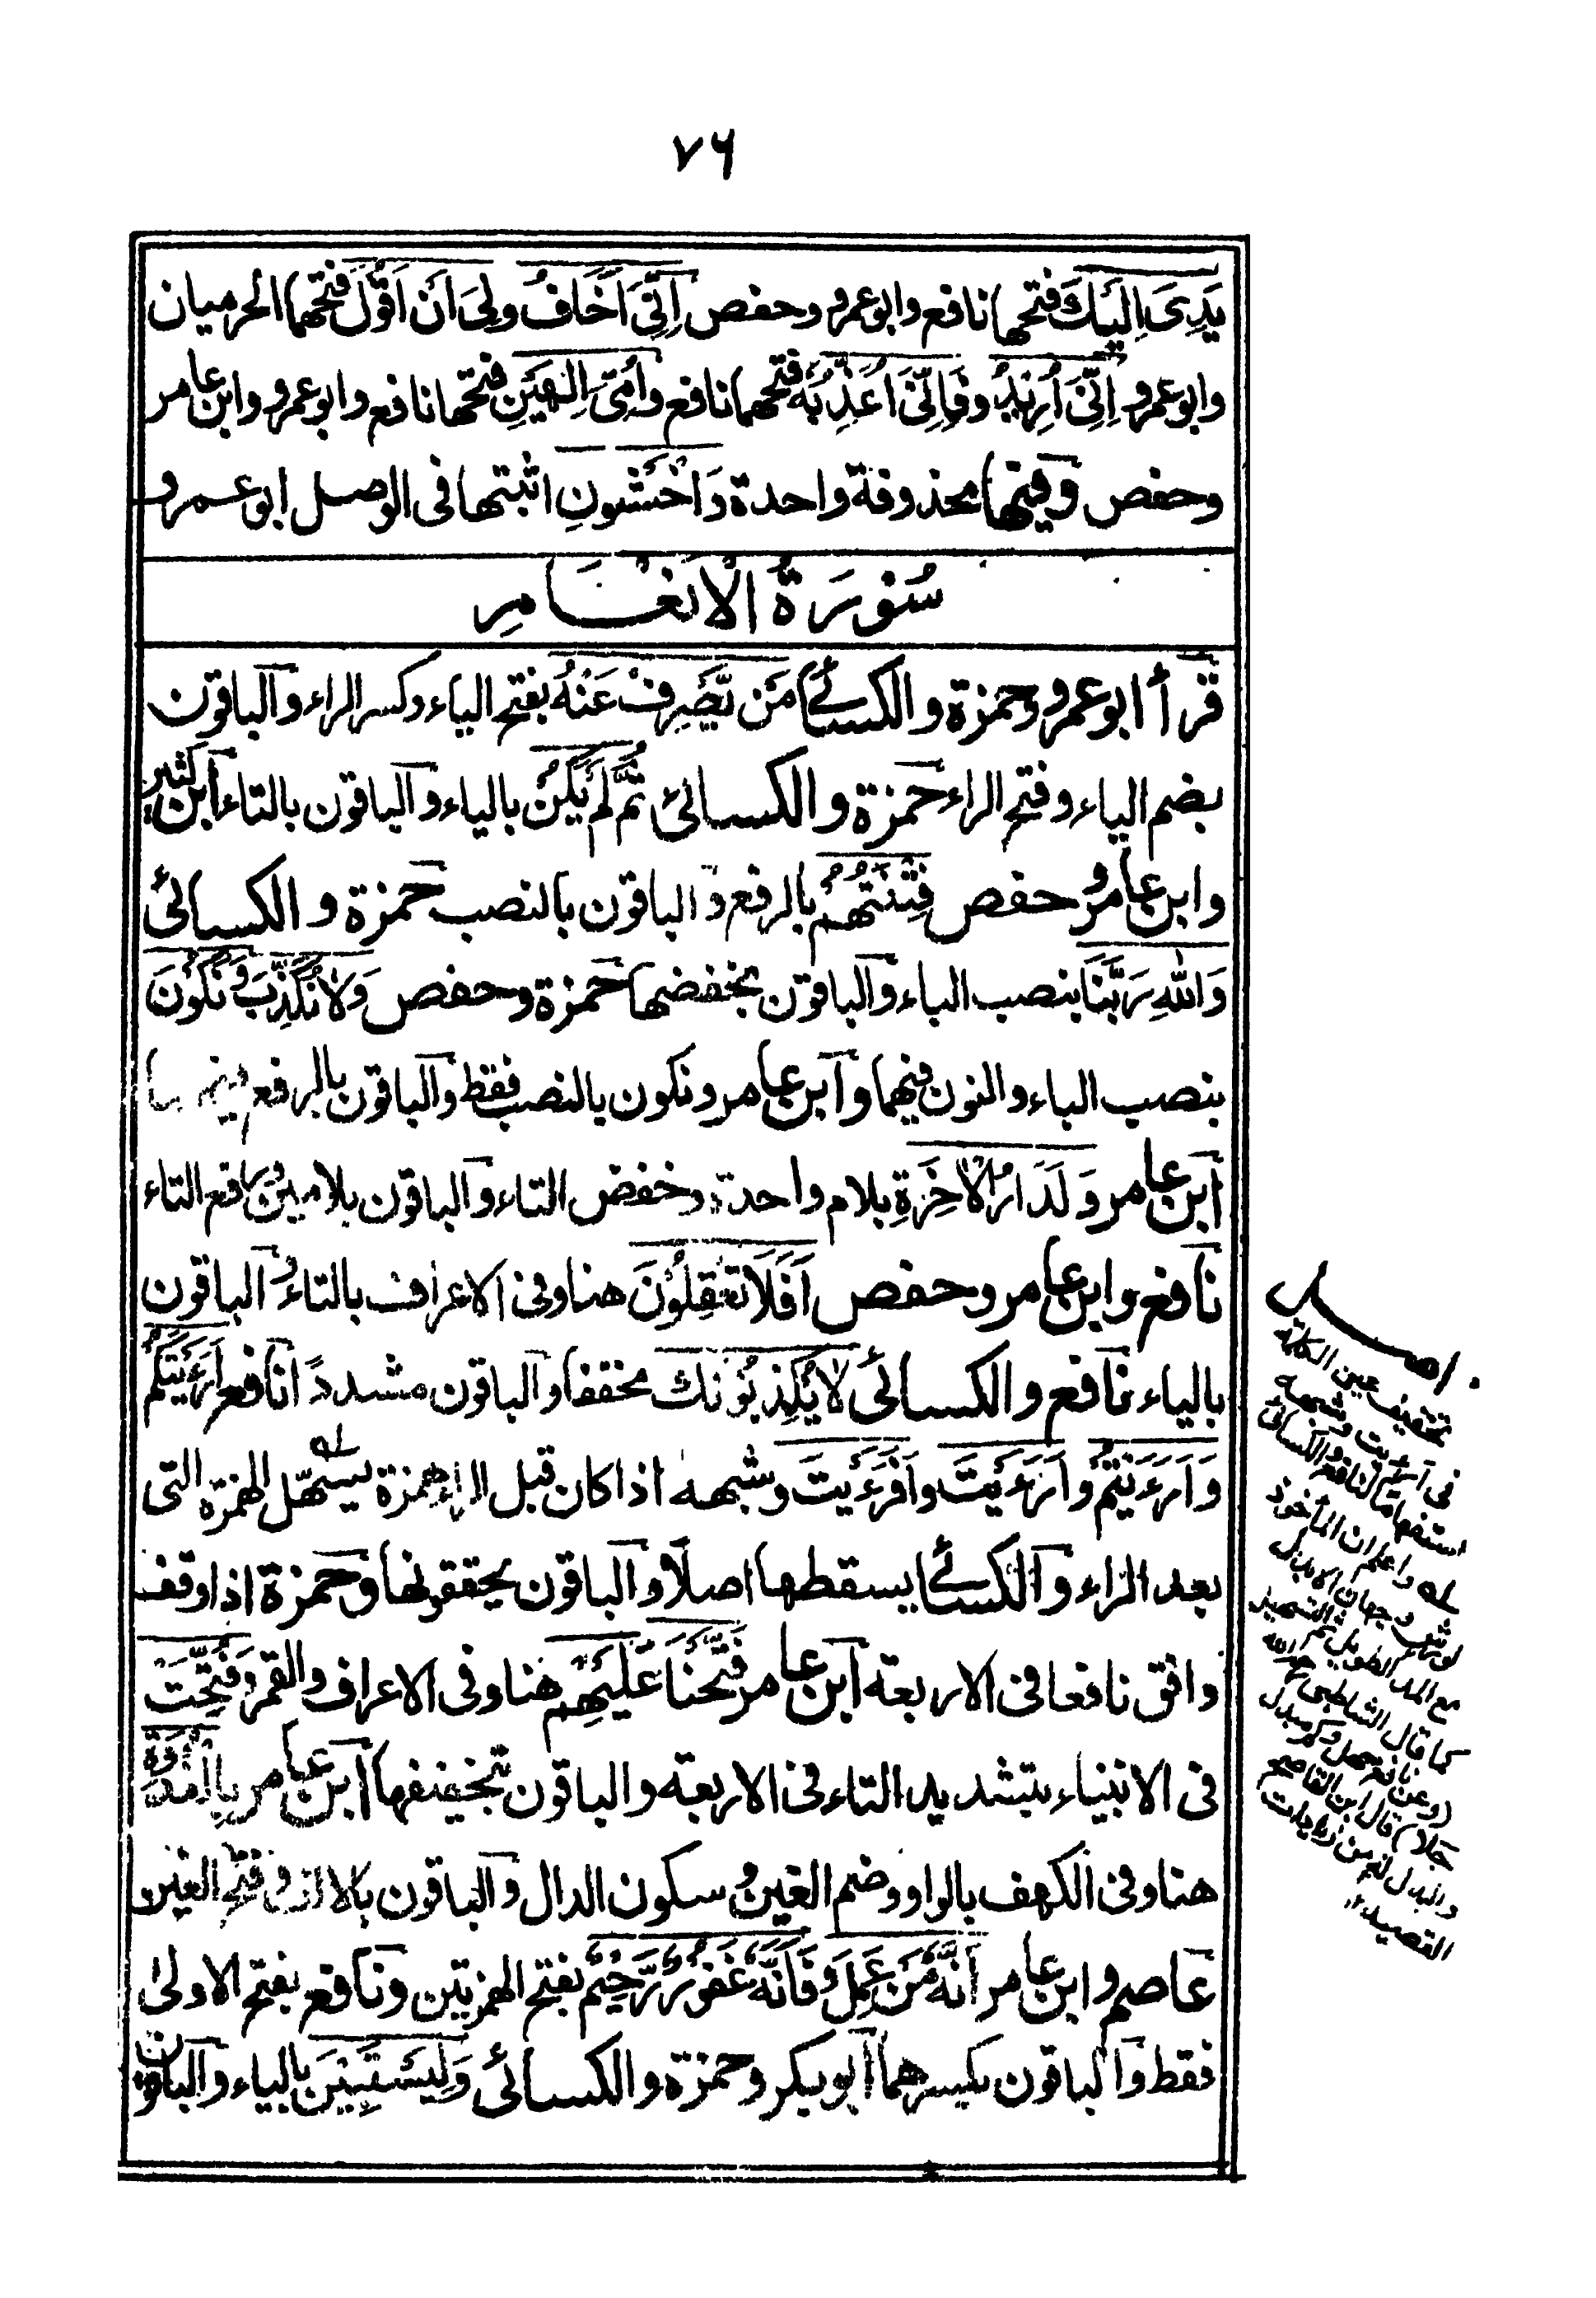 ۷۶
يَدِىَ اِلَيْكَ فتحها نافع وابو عمرو وحفص اِنِّىَ اَخَافُ ولِىَ اَنْ اَقُوْلَ فتحهما الحرميان
وابو عمرو اِنِّىَ اُرِيْدُ وفَاِنِّىَ اُعَذِّبُهٗ فتحهما نافع واُمِّىَ اِلٰهَيْنِ فتحها نافع وابو عمرو وابن عامر
وحفص وفيها محذوفة واحدة وَاخْشَوْنِ اثبتها فى الوصل ابو عمرو
سُوْرَةُ الْاَنْعَامِ
قرأ ابو عمرو وحمزة والكسائى مَنْ يَّصْرِفْ عَنْهُ بفتح الياء وكسر الراء والباقون
بضم الياء وفتح الراء حمزة والكسائى ثُمَّ لَمْ يَكُنْ بالياء والباقون بالتاء ابن كثير
وابن عامر وحفص فِتْنَتُهُمْ بالرفع والباقون بالنصب حمزة والكسائى
وَاللّٰهِ رَبَّنَا بنصب الباء والباقون بخفضها حمزة وحفص وَلَا نُكَذِّبَ وَنَكُوْنَ
بنصب الباء والنون فيهما وابن عامر ونكون بالنصب فقط والباقون بالرفع فيهما
ابن عامر وَلَدَارُ الْاٰخِرَةِ بلام واحدة وخفض التاء والباقون بلامين ورفع التاء
نافع وابن عامر وحفص اَفَلَا تَعْقِلُوْنَ هنا وفى الاعراف بالتاء والباقون
بالياء نافع والكسائى لَا يُكْذِبُوْنَكَ مخففا والباقون مشدداً نافع اَرَءَيْتَكُمْ
وَاَرَءَيْتُمْ وَاَرَءَيْتَ وَاَفَرَءَيْتَ وشبهه اذا كان قبل الراء همزة يسهّل الهمزة التى
بعد الراء والكسائى يسقطها اصلا والباقون يحققونها وحمزة اذا وقف
وافق نافعا فى الاربعة ابن عامر فَتَّحْنَا عَلَيْهِمْ هنا وفى الاعراف والقمر وفُتِّحَتْ
فى الانبياء بتشديد التاء فى الاربعة والباقون بتخفيفها ابن عامر بالْغُدْوَةِ
هنا وفى الكهف بالواو وضم الغين وسكون الدال والباقون بالالف وفتح الغين و
عاصم وابن عامر اَنَّهٗ مَنْ عَمِلَ وفَاَنَّهٗ غَفُوْرٌ رَّحِيْمٌ بفتح الهمزتين ونافع بفتح الاولىٰ
فقط والباقون بكسرهما ابو بكر وحمزة والكسائى وَلِيَسْتَبِيْنَ بالياء والباقون
تخفيف عين الكلمة
فى أرءيت وشبهه
استفهاما لنافع والكسائى
له واعلم ان المأخوذ
لورش وجهان الابدال
مع المد الطويل ثم التسهيل
كما قال الشاطبى رحمه الله
(وعن نافع سهل وكم مبدل
جلا) قال ابن القاصح
والبدل له من زيادات
القصيد ۱۲